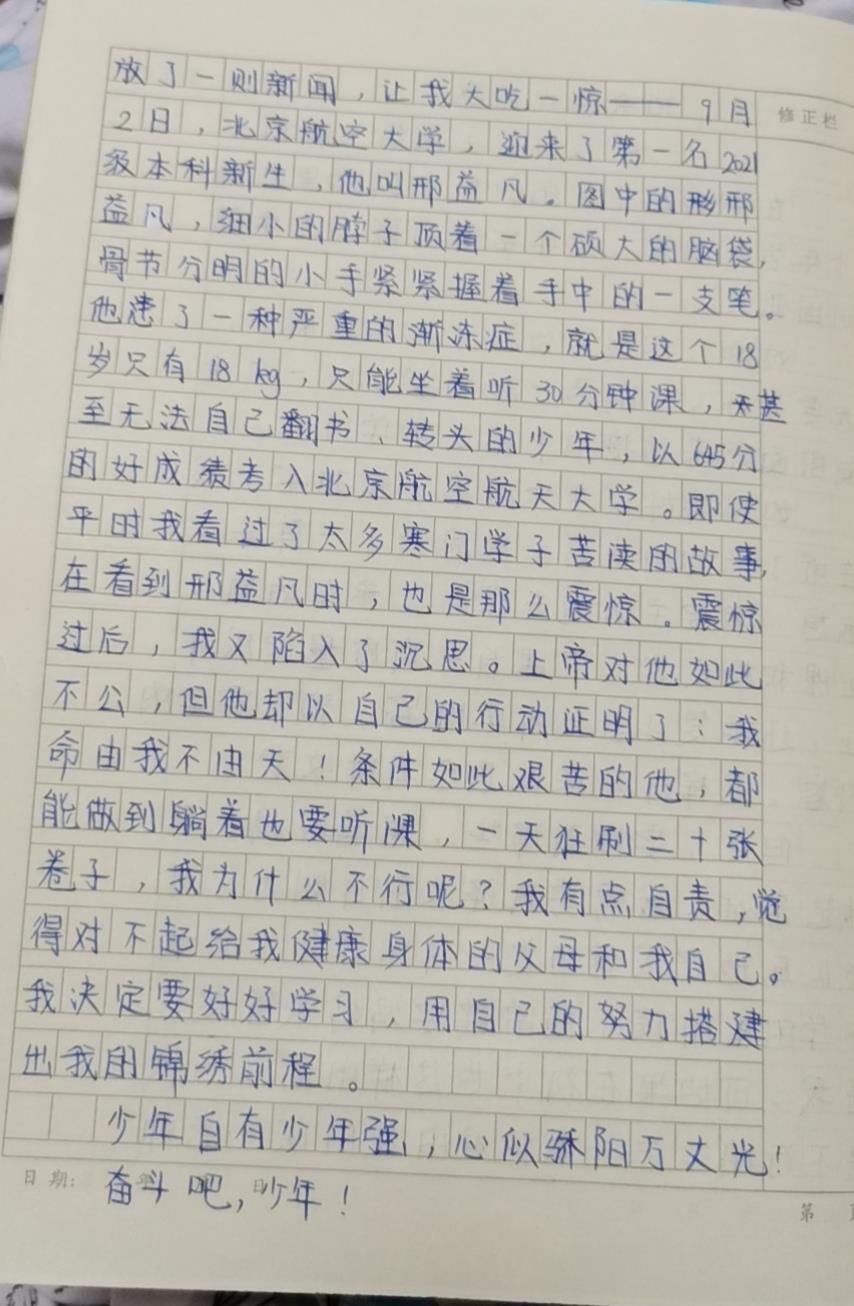 放了一则新闻，让我大吃一惊——9月
修正栏
2日，北京航空大学，迎来了第一名2021
级本科新生，他叫邢益凡。图中的形邢
益凡，细小的脖子顶着一个硕大的脑袋，
骨节分明的小手紧紧握着手中的一支笔。
他患了一种严重的渐冻症，就是这个18
岁只有18kg，只能坐着听30分钟课，甚
至无法自己翻书、转头的少年，以645分
的好成绩考入北京航空航天大学。即使
平时我看过了太多寒门学子苦读的故事，
在看到邢益凡时，也是那么震惊。震惊
过后，我又陷入了沉思。上帝对他如此
不公，但他却以自己的行动证明了：我
命由我不由天！条件如此艰苦的他，都
能做到躺着也要听课，一天狂刷二十张
卷子，我为什么不行呢？我有点自责，觉
得对不起给我健康身体的父母和我自己。
我决定要好好学习，用自己的努力搭建
出我的锦绣前程。
少年自有少年强，心似骄阳万丈光！
日期：
奋斗吧，少年！
第